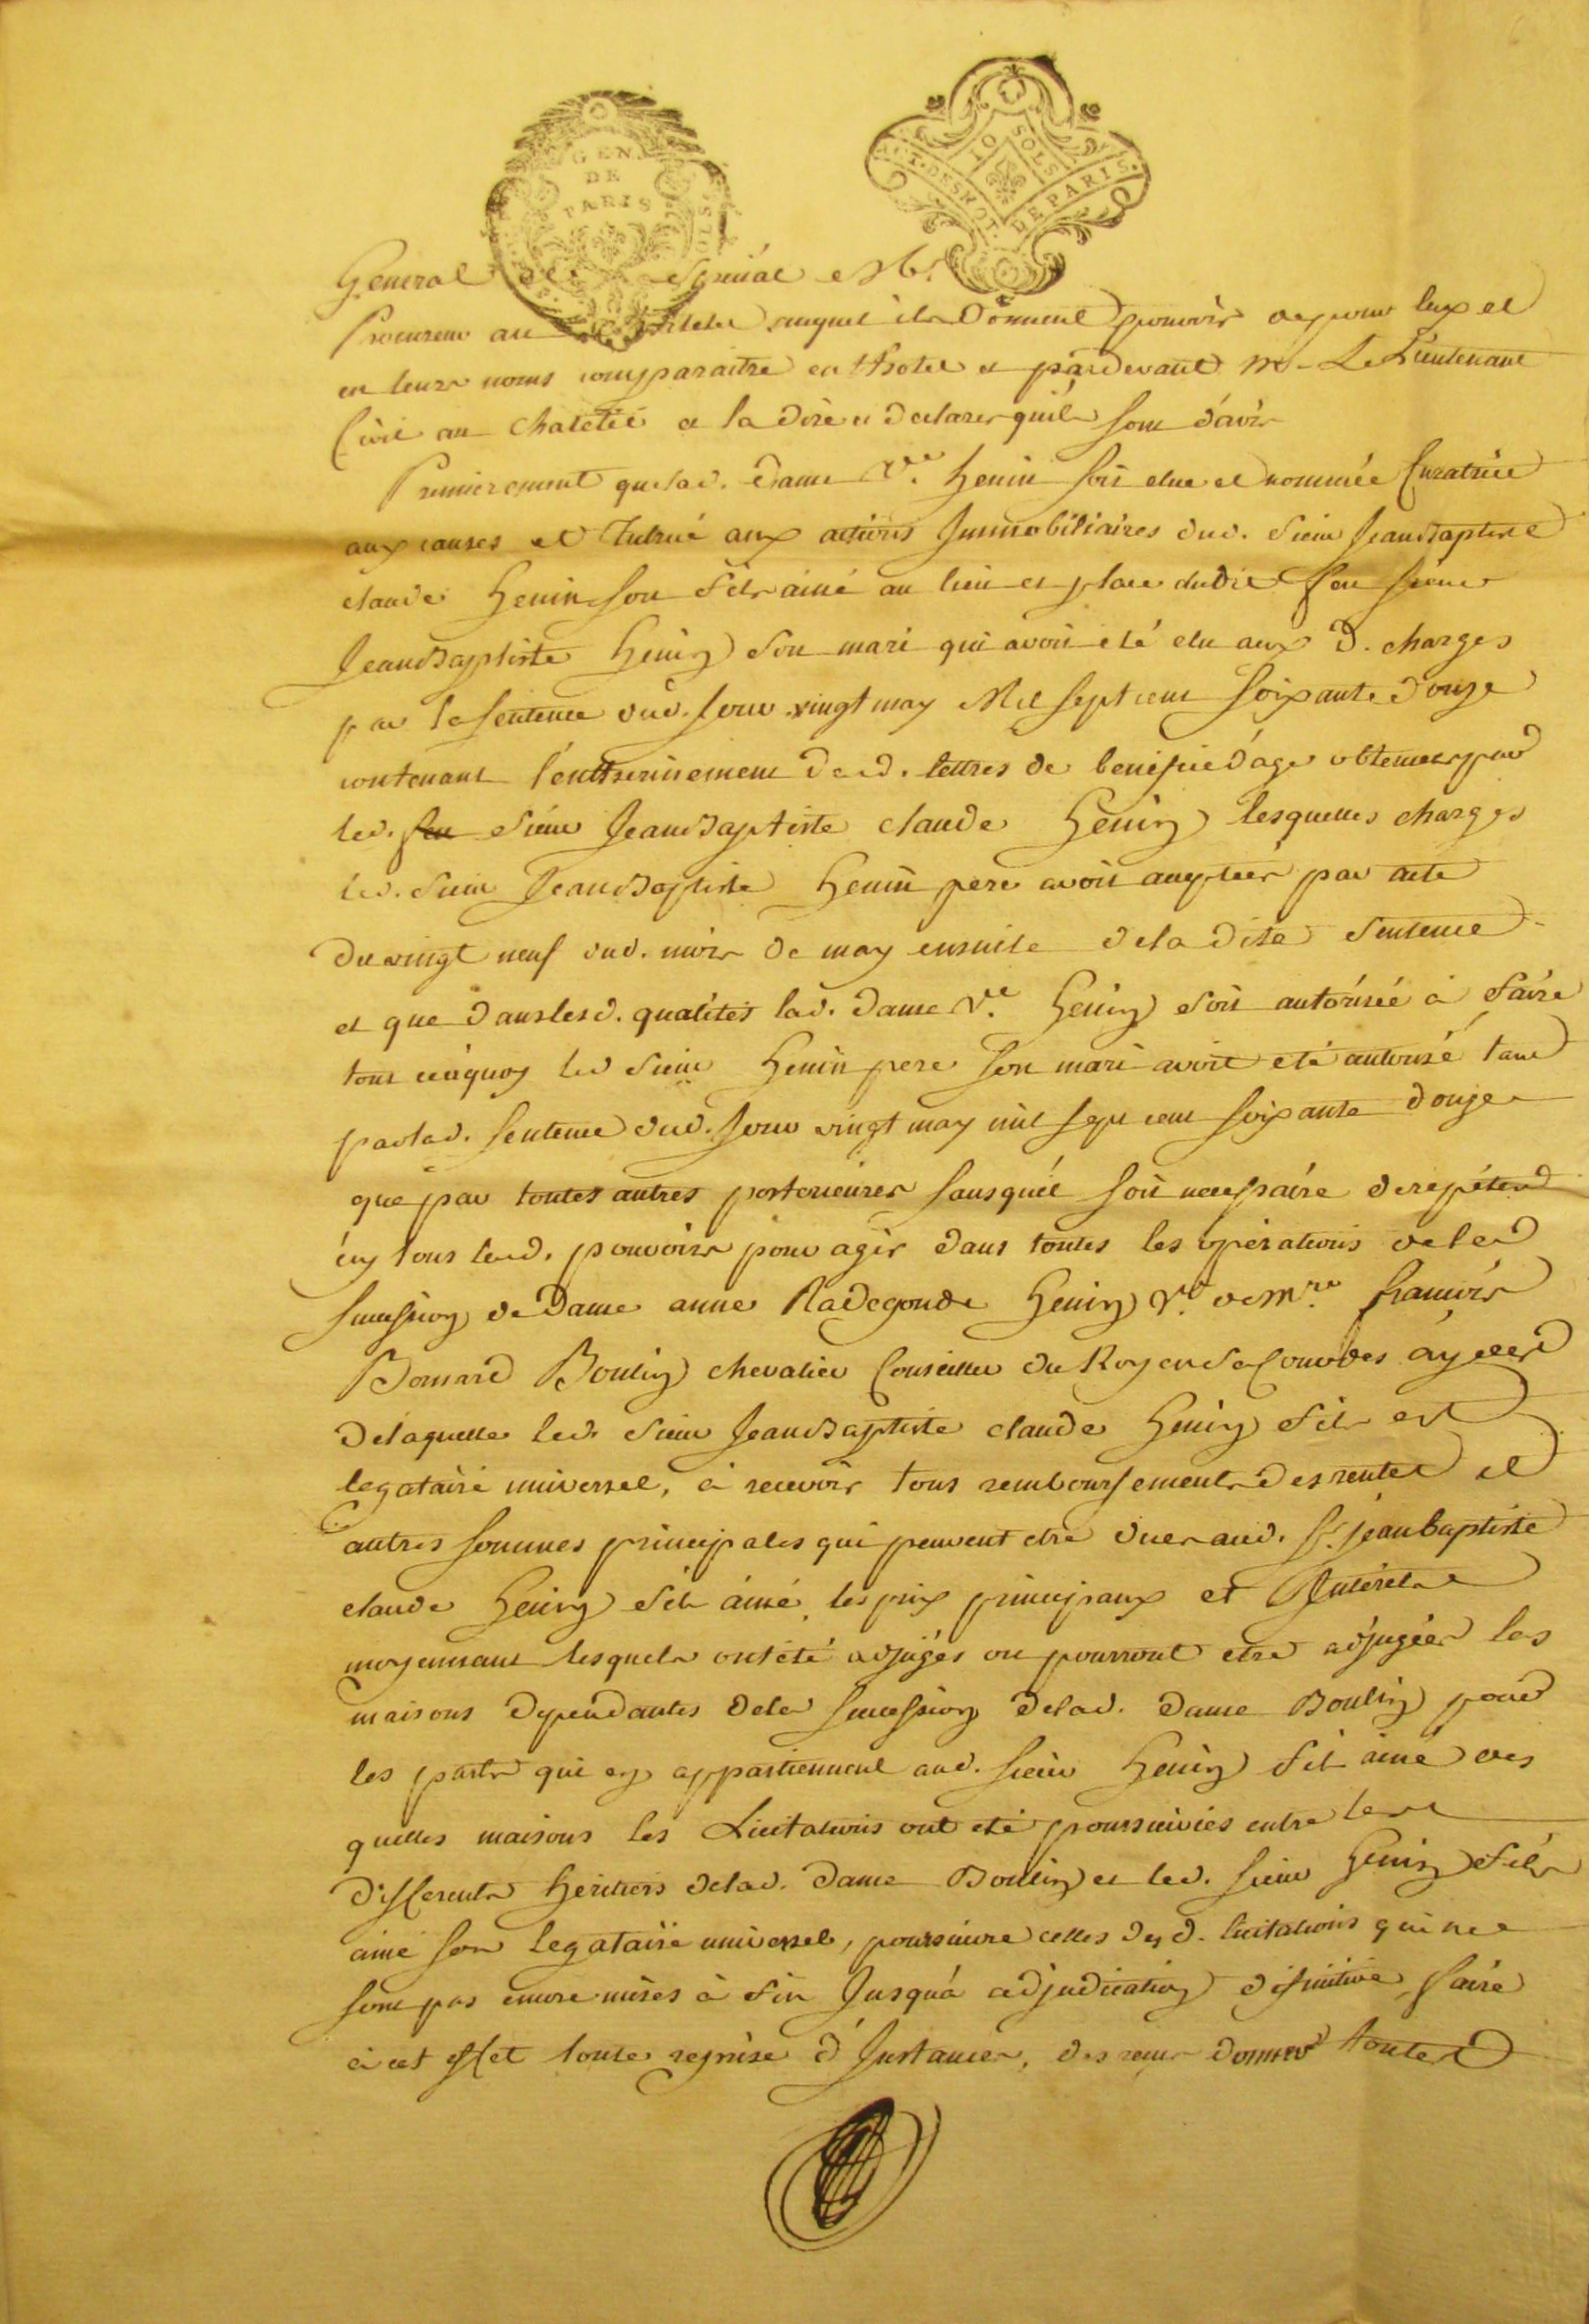 GEN.
DE
PARIS
10 SOLS
ACT. DES NOT. DE PARIS.
General et special Mc
Procureur au Chatelet auquel ils donnent pouvoir de pour eux et
en leurs noms comparaitre en l'hotel et pardevant M. Le Lieutenant
Civil au Chatelet et la dire et declarer quils sont d'avis
Premierement que lad. Dame Ve. henin soit elue et nommée Curatrice
aux causes et Tutrice aux actions Immobiliaires dud. Sieur Jean Baptiste
claude henin son fils ainé au lieu et place dudit feu sieur
Jean Baptiste henin son mari qui avoit eté elu aux d. charges
par la sentence dud. jour vingt may Mil sept cent soixante douze
contenant l'entherinement desd. lettres de benefice d'age obtenues par
led. feu Sieur Jean Baptiste claude henin lesquelles charges
led. Sieur Jean Baptiste henin pere avoit acceptées par acte
du vingt neuf dud. mois de may ensuite de la dite Sentence
et que dans lesd. qualités lad. Dame Ve. henin soit autorisée à faire
tout ce à quoy led Sieur henin pere son mari avoit eté autorisé tant
par lad. Sentence dud. jour vingt may mil sept cent soixante douze
que par toutes autres posterieures sans qu'il soit necessaire de repeter
icy tous lesd. pouvoirs pour agir dans toutes les operations de la
succession de Dame anne Radegonde henin Ve. de Mre. francois
Bernard Boulin chevalier Conseiller du Roy en sa Cour des aydes
de laquelle led. Sieur Jean Baptiste claude henin fils est
legataire universel, à recevoir tous remboursements des rentes et
autres sommes principales qui peuvent etre dues aud. Sr. jean baptiste
claude henin fils ainé les prix principaux et Interets
moyennant lesquels ont été adjugés ou pourront etre adjugées les
maisons dependantes de la succession de lad. Dame Boulin pour
les parts qui en appartiennent aud. Sieur henin fils ainé des
quelles maisons les Licitations ont eté poursuivies entre les
differents heritiers de lad. Dame Boulin et led. Sieur henin fils
ainé son legataire universel, poursuivre celles des d. licitations qui ne
sont pas encore mises à fin Jusqu'à adjudication definitive, faire
à cet effet toutes reprise d'Instances, des reçus donner toutes